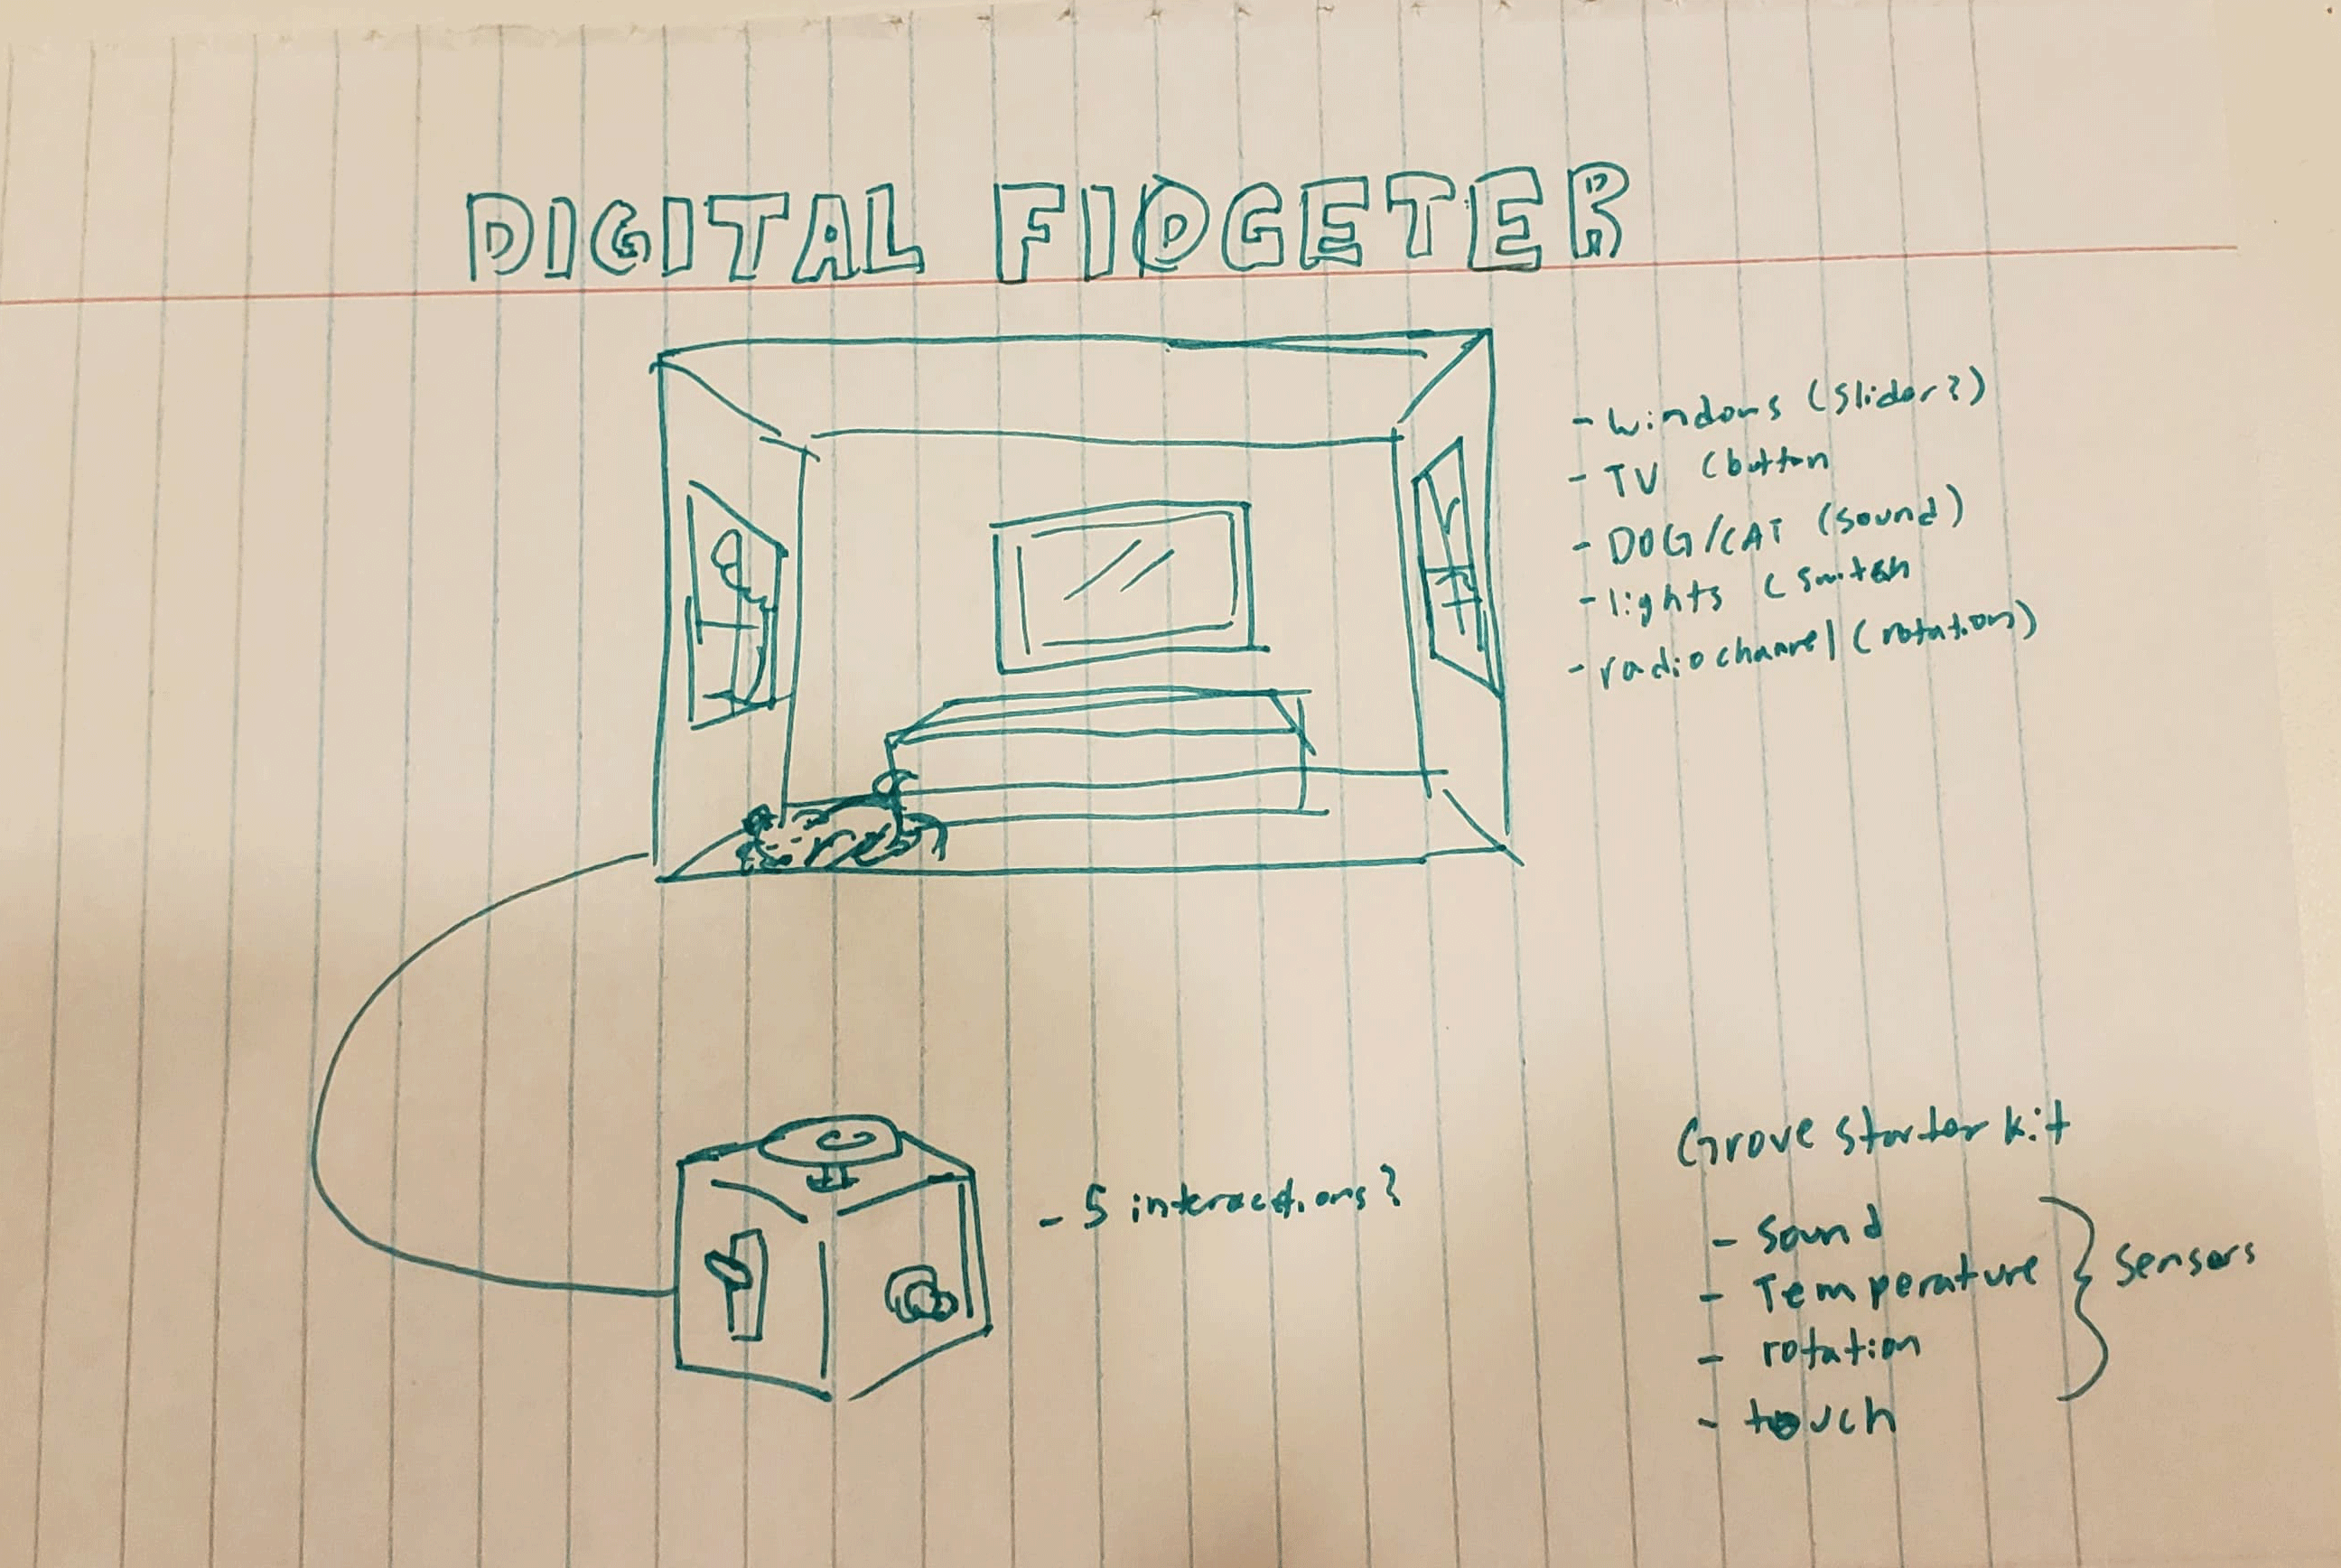 DIGITAL FIDGETER
- windows (slider?)
- TV (button
- DOG/CAT (sound)
- lights (switch
- radio channel (rotation)
- 5 interactions?
Grove starter kit
- sound
- Temperature
- rotation
- touch
sensors